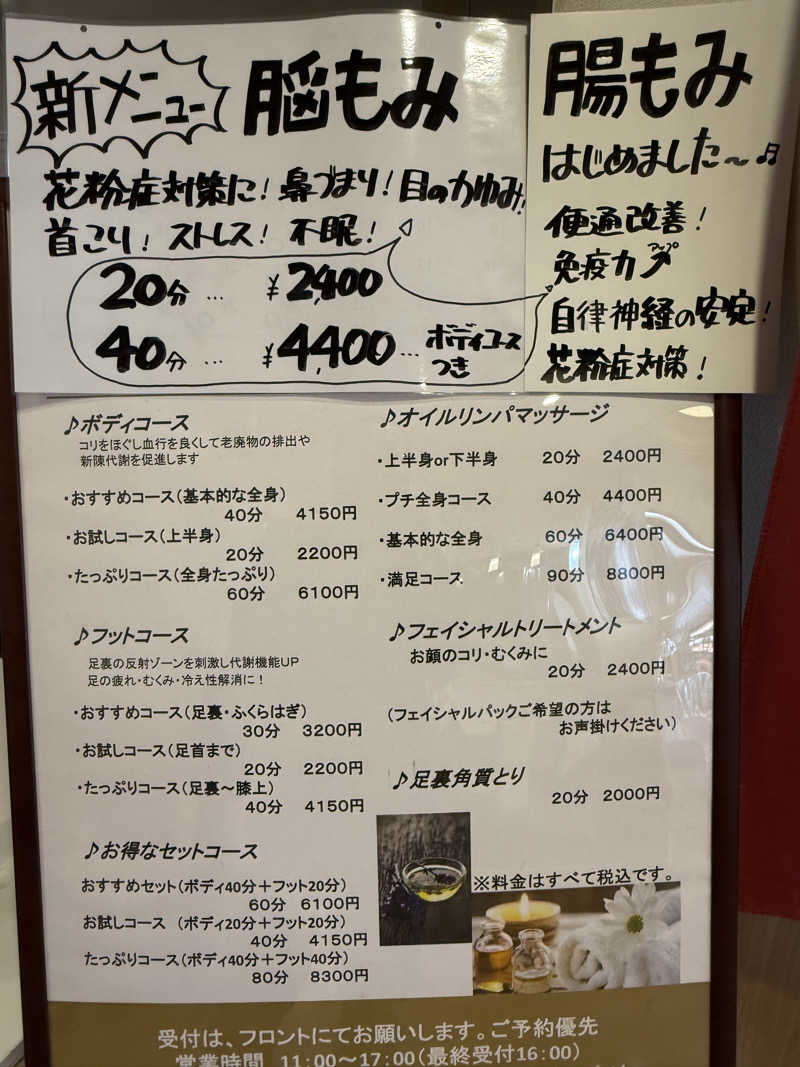 新メニュー 脳もみ
花粉症対策に！鼻づまり！目のかゆみ！
首こり！ストレス！不眠！
20分 … ¥2,400
40分 … ¥4,400 … ボディコースつき
腸もみ
はじめました～♬
便通改善！
免疫力アップ
自律神経の安定！
花粉症対策！
♪ボディコース
コリをほぐし血行を良くして老廃物の排出や
新陳代謝を促進します
・おすすめコース（基本的な全身）
40分 4150円
・お試しコース（上半身）
20分 2200円
・たっぷりコース（全身たっぷり）
60分 6100円
♪フットコース
足裏の反射ゾーンを刺激し代謝機能UP
足の疲れ・むくみ・冷え性解消に！
・おすすめコース（足裏・ふくらはぎ）
30分 3200円
・お試しコース（足首まで）
20分 2200円
・たっぷりコース（足裏～膝上）
40分 4150円
♪お得なセットコース
おすすめセット（ボディ40分＋フット20分）
60分 6100円
お試しコース （ボディ20分＋フット20分）
40分 4150円
たっぷりコース（ボディ40分＋フット40分）
80分 8300円
♪オイルリンパマッサージ
・上半身or下半身 20分 2400円
・プチ全身コース 40分 4400円
・基本的な全身 60分 6400円
・満足コース 90分 8800円
♪フェイシャルトリートメント
お顔のコリ・むくみに
20分 2400円
（フェイシャルパックご希望の方は
お声掛けください）
♪足裏角質とり
20分 2000円
※料金はすべて税込です。
受付は、フロントにてお願いします。ご予約優先
営業時間 11：00～17：00（最終受付16：00）